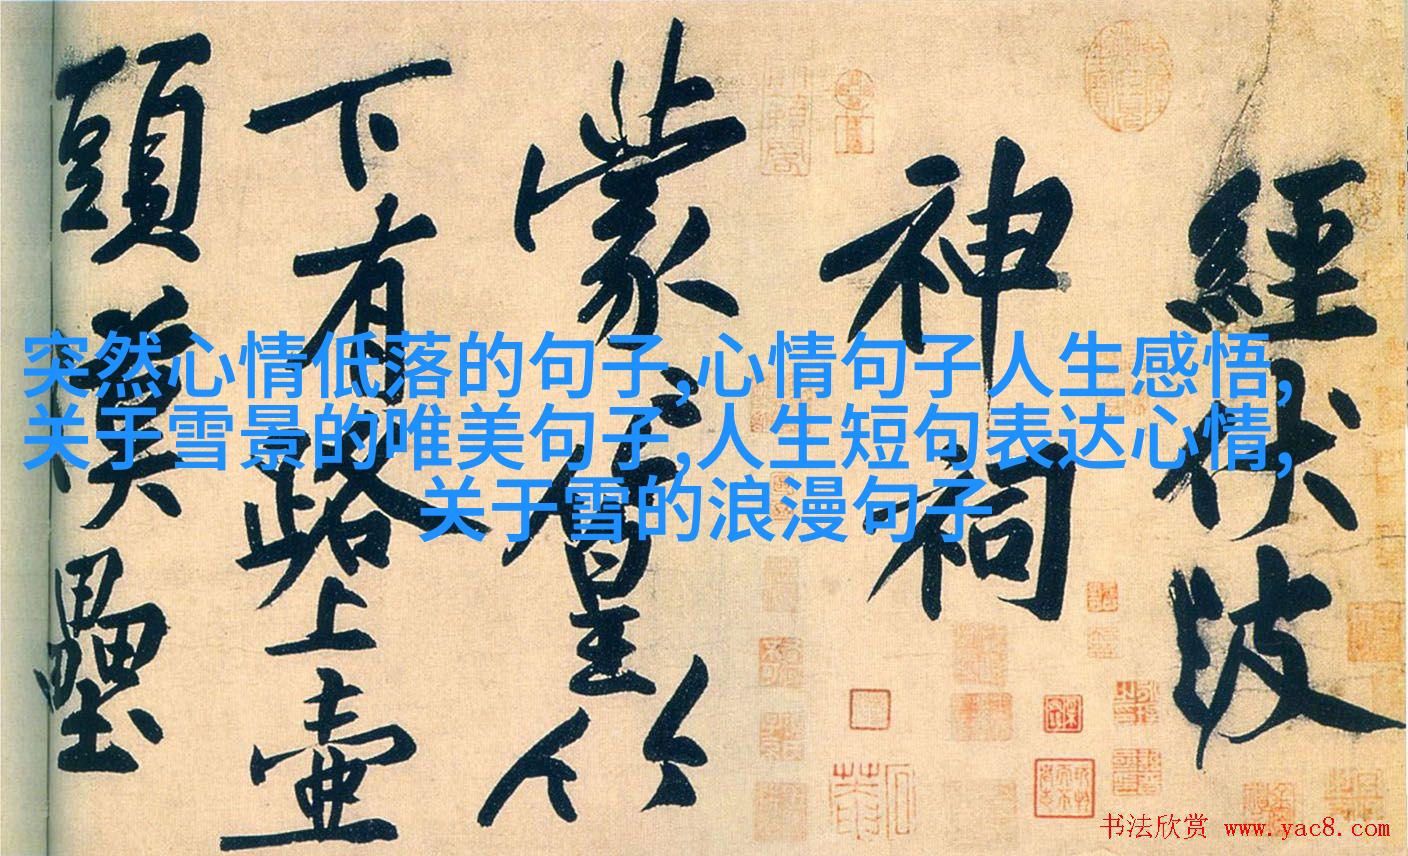 經伏波
神祠
蒙〻篁竹
下有路上壺
頭漢壘
突然心情低落的句子,心情句子人生感悟,
关于雪景的唯美句子,人生短句表达心情,
关于雪的浪漫句子
书法欣赏 www.yac8.com